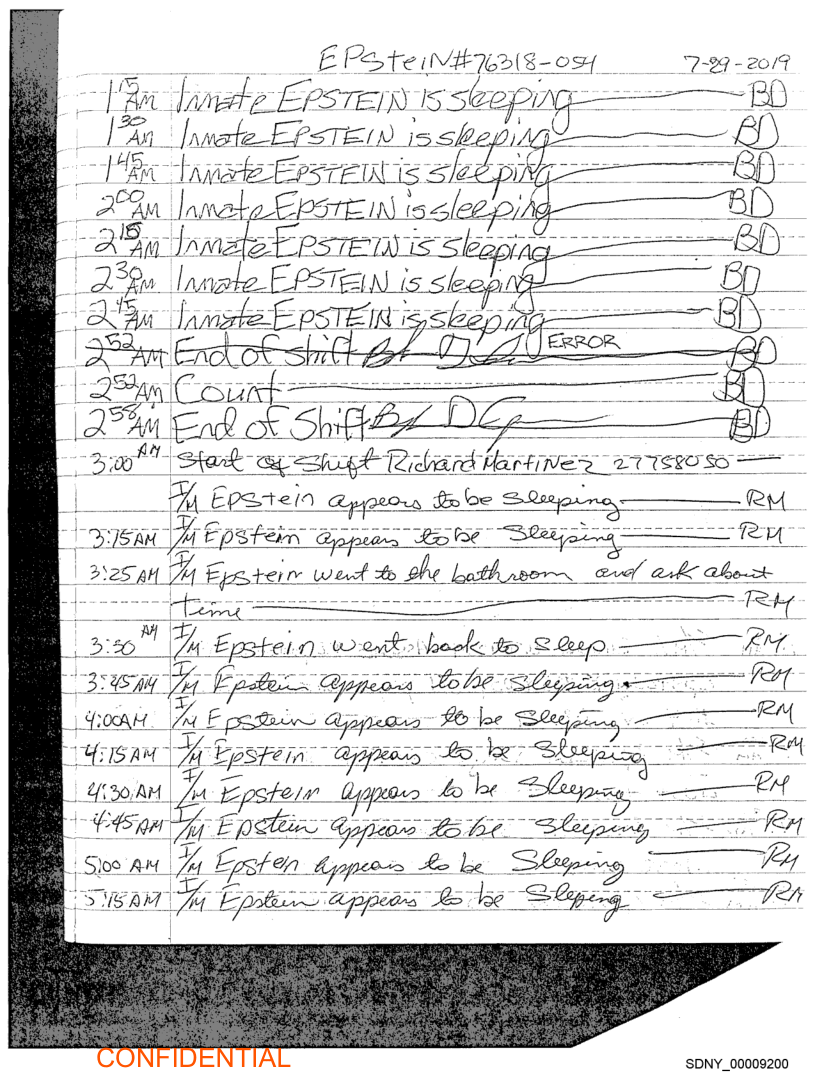 EPSteiN#76318-054 7-29-2019
1 15 AM Inmate EPSTEIN is sleeping BD
1 30 AM Inmate EPSTEIN is sleeping BD
1 45 AM Inmate EPSTEIN is sleeping BD
2 00 AM Inmate EPSTEIN is sleeping BD
2 15 AM Inmate EPSTEIN is sleeping BD
2 30 AM Inmate EPSTEIN is sleeping BD
2 45 AM Inmate EPSTEIN is sleeping BD
2 52 AM End of Shift ERROR BD
2 52 AM Count BD
2 58 AM End of Shift BD
3:00 AM Start of Shift Richard Martinez 27758050
I/M EPStein appears to be Sleeping RM
3:15 AM I/M Epstein appears to be Sleeping RM
3:25 AM I/M Epstein went to the bathroom and ask about
time RM
3:30 AM I/M Epstein went back to sleep RM
3:45 AM I/M Epstein appears to be sleeping. RM
4:00 AM I/M Epstein appears to be Sleeping RM
4:15 AM I/M Epstein appears to be Sleeping RM
4:30 AM I/M Epstein appears to be Sleeping RM
4:45 AM I/M Epstein appears to be Sleeping RM
5:00 AM I/M Epsten appears to be Sleeping RM
5:15 AM I/M Epstein appears to be Sleping RM
CONFIDENTIAL
SDNY_00009200